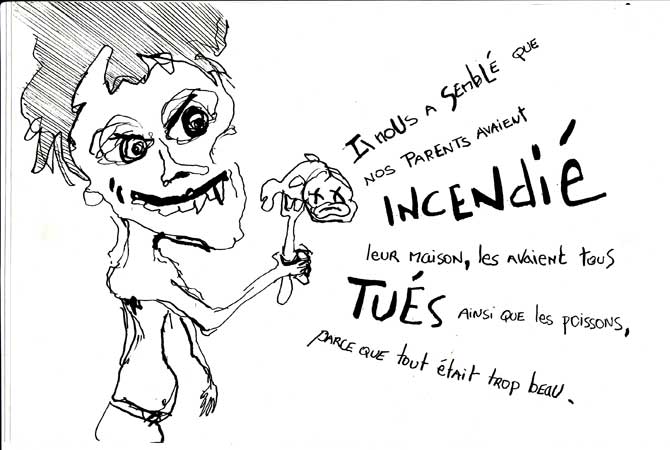 Il nous a semblé que
nos parents avaient
incendié
leur maison, les avaient tous
tués ainsi que les poissons,
parce que tout était trop beau.